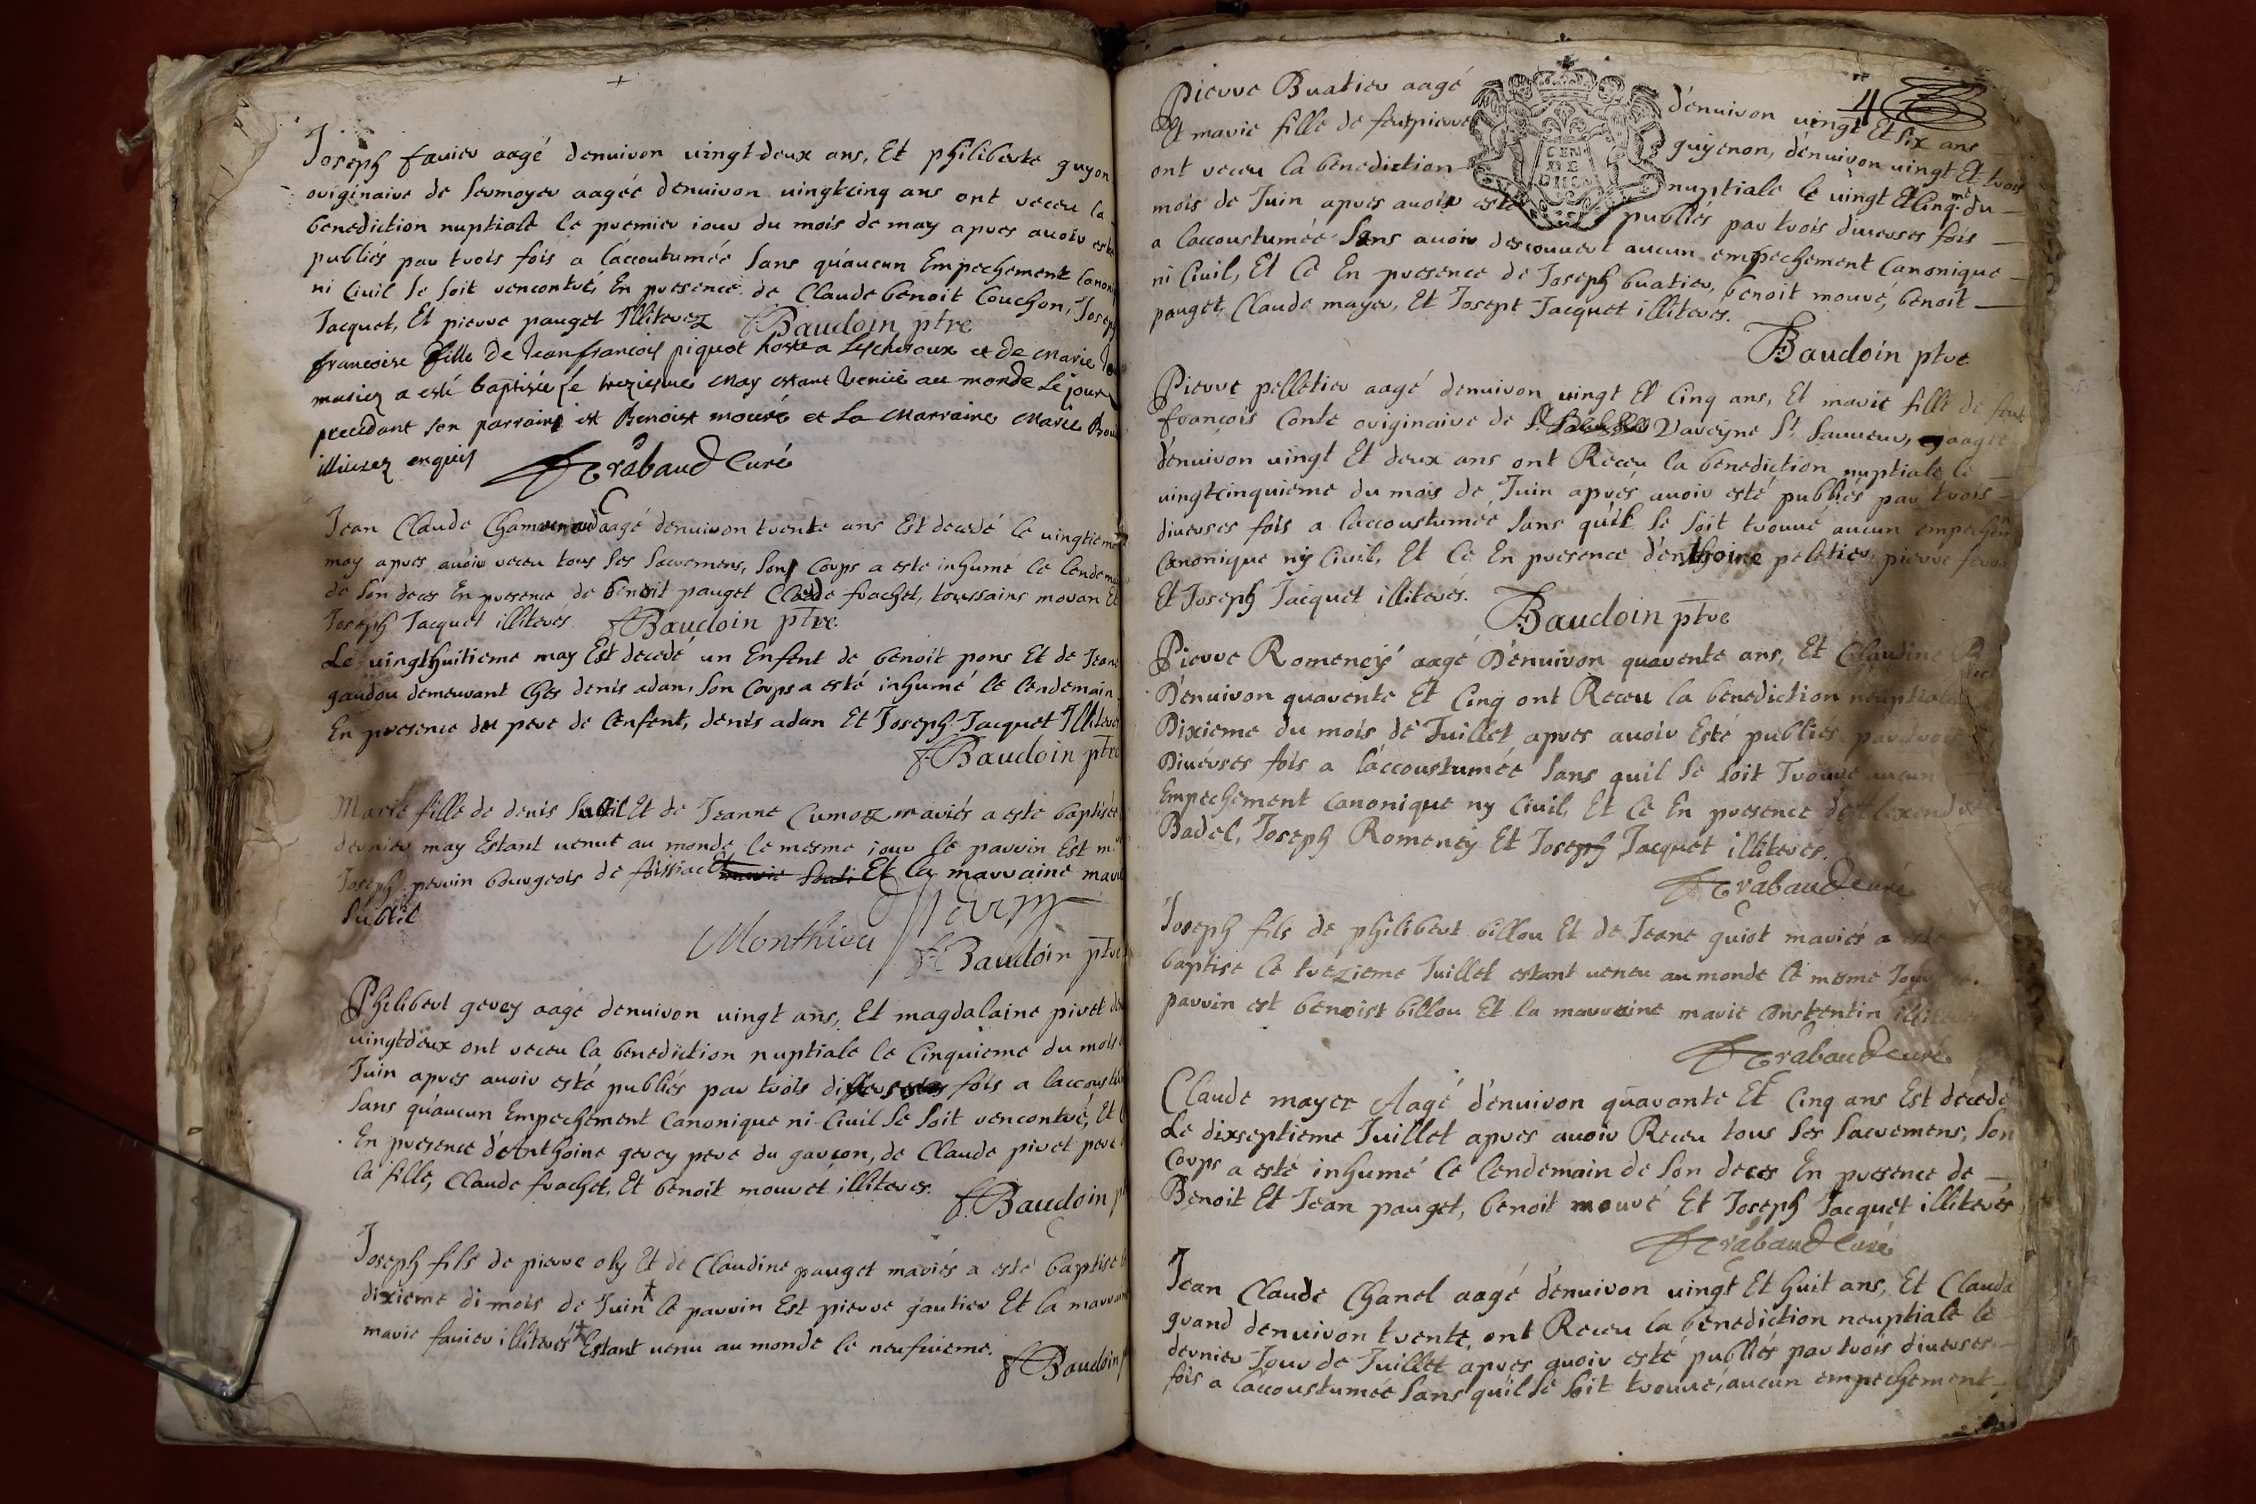 Joseph favier aagé denuiron uingt deux ans, Et philiberte guyon
originaire de sermoyer aagée denuiron uingt cinq ans ont receu la
benediction nuptiale le premier iour du mois de may apres auoir esté
publiés par trois fois a l'accoutumée sans qu'aucun Empechement
ni Ciuil se soit rencontré, En presence de Claude benoit Couchon, Joseph
Jacquet, Et pierre pauget Illiterez Baudoin ptre
francoise fille De Jean francois piquot hoste a Lescheroux et de Marie
a esté baptisée le treziesme May estant Venüe au monde Le jour
precedant son parrain est Benoist mouré et La Marraine Marie
illiterez enquis Trabaud Curé
Jean Claude aagé denuiron trente ans Est decedé le uingtieme
may apres auoir receu tous ses sacremens, son Corps a este inhumé le
de son deces En presence de benoit pauget Claude frachet, toussains moran Et
Joseph Jacquet illiterés. Baudoin ptre.
Le uingthuitieme may Est decedé un Enfent de benoit pons Et de Jeane
gaudou demeurant Chés denis adan, son Corps a esté inhumé le lendemain
En presence du pere de l'enfent, denis adan Et Joseph Jacquet Illiterés
Baudoin ptre
Marie fille de denis Et de Jeanne mariés a este baptisée
dernier may Estant uenue au monde le mesme iour le parrin Est
Joseph perrin bourgeois de Et la marraine marie
Monthieu Perrin
Baudoin ptre
Philibert gevey aagé denuiron uingt ans, Et magdalaine pivet
uingtdeux ont receu la benediction nuptiale le Cinquieme du mois
Juin apres auoir esté publiés par trois fois a
sans qu'aucun Empechement Canonique ni Ciuil se soit rencontré, Et
En presence d'Anthoine gevey pere du garcon, de Claude pivet pere
la fille, Claude frachet, Et benoit mouré illiterés.
Baudoin
Joseph fils de pierre oly Et de Claudine pauget mariés a esté baptisé
dixieme di mois de Juin + le parrin Est pierre gautier Et la
marie favier illiterés + Estant uenu au monde le neufuieme.
Baudoin
4
Pierre Buatier aagé d'enuiron uingt Et six ans
Et marie fille de feu pierre guyenon, d'enuiron uingt Et trois
ont receu la benediction nuptiale le uingt Et Cinq.me du
mois de Juin apres auoir esté publiés par trois diuerses fois
a l'accoustumée sans auoir descouuert aucun empechement Canonique
ni Ciuil, Et Ce En presence de Joseph buatier, benoit mouré, benoit
pauget, Claude mayer, Et Josept Jacquet illiterés.
Baudoin ptre
Pierre pelletier aagé denuiron uingt Et Cinq ans, Et marie fille de feu
françois Conte originaire de Vareyne St. Sauueur, aagée
d'enuiron uingt Et deux ans ont Receu la benediction nuptiale le
uingtcinquieme du mois de Juin aprés auoir esté publiés par trois
diuerses fois a l'accoustumée sans qu'il se soit trouué aucun
Canonique ny Ciuil, Et Ce En presence d'enthoine peletier pierre
Et Joseph Jacquet illiterés.
Baudoin ptre
Pierre Romeney aagé D'enuiron quarente ans, Et Claudine
D'enuiron quarente Et Cinq ont Receu la benediction neuptiale
Dixieme du mois de Juillet apres auoir Esté publiés par trois
Diuérses fois a l'accoustumée sans quil se soit Trouué aucun
Empechement Canonique ny Ciuil, Et Ce En presence
Badel, Joseph Romeney Et Joseph Jacquet illiterés.
Trabaud Curé
Joseph fils de philibert billou Et de Jeane guiot mariés a este
baptise le trezieme Juillet estant ueneu au monde le mesme Jour
parrin est benoist billou Et la marraine marie Constentin
Trabaud Curé
Claude mayer Aagé d'enuiron quarante Et Cinq ans Est decede
Le dixseptieme Juillet apres auoir Receu tous ses sacremens, son
Corps a esté inhumé le lendemain de son deces En presence de
Benoit Et Jean pauget, benoit mouré Et Joseph Jacquet illiterés
Trabaud Curé
Jean Claude Chanel aagé d'enuiron uingt Et huit ans, Et Clauda
grand denuiron trente, ont Receu la benediction neuptiale le
dernier Jour de Juillet apres auoir esté publiés par trois diuerses
fois a l'accoustumée sans qu'il se soit trouué, aucun empechement